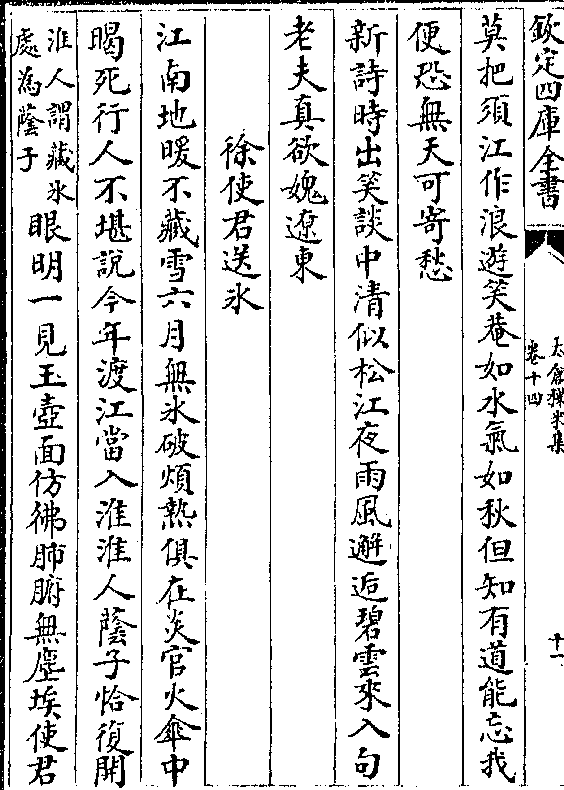 欽定四庫全書
太倉稊米集
卷十四
十一
莫把須江作浪遊笑菴如水氣如秋但知有道能忘我
便恐無天可寄愁
新詩時出笑談中清似松江夜雨風邂逅碧雲來入句
老夫真欲媿遼東
徐使君送氷
江南地暖不藏雪六月無氷破煩熱俱在炎官火傘中
暍死行人不堪說今年渡江當入淮淮人蔭子恰復開
淮人謂藏氷
處為蔭子
眼明一見玉壺面仿彿肺腑無塵埃使君